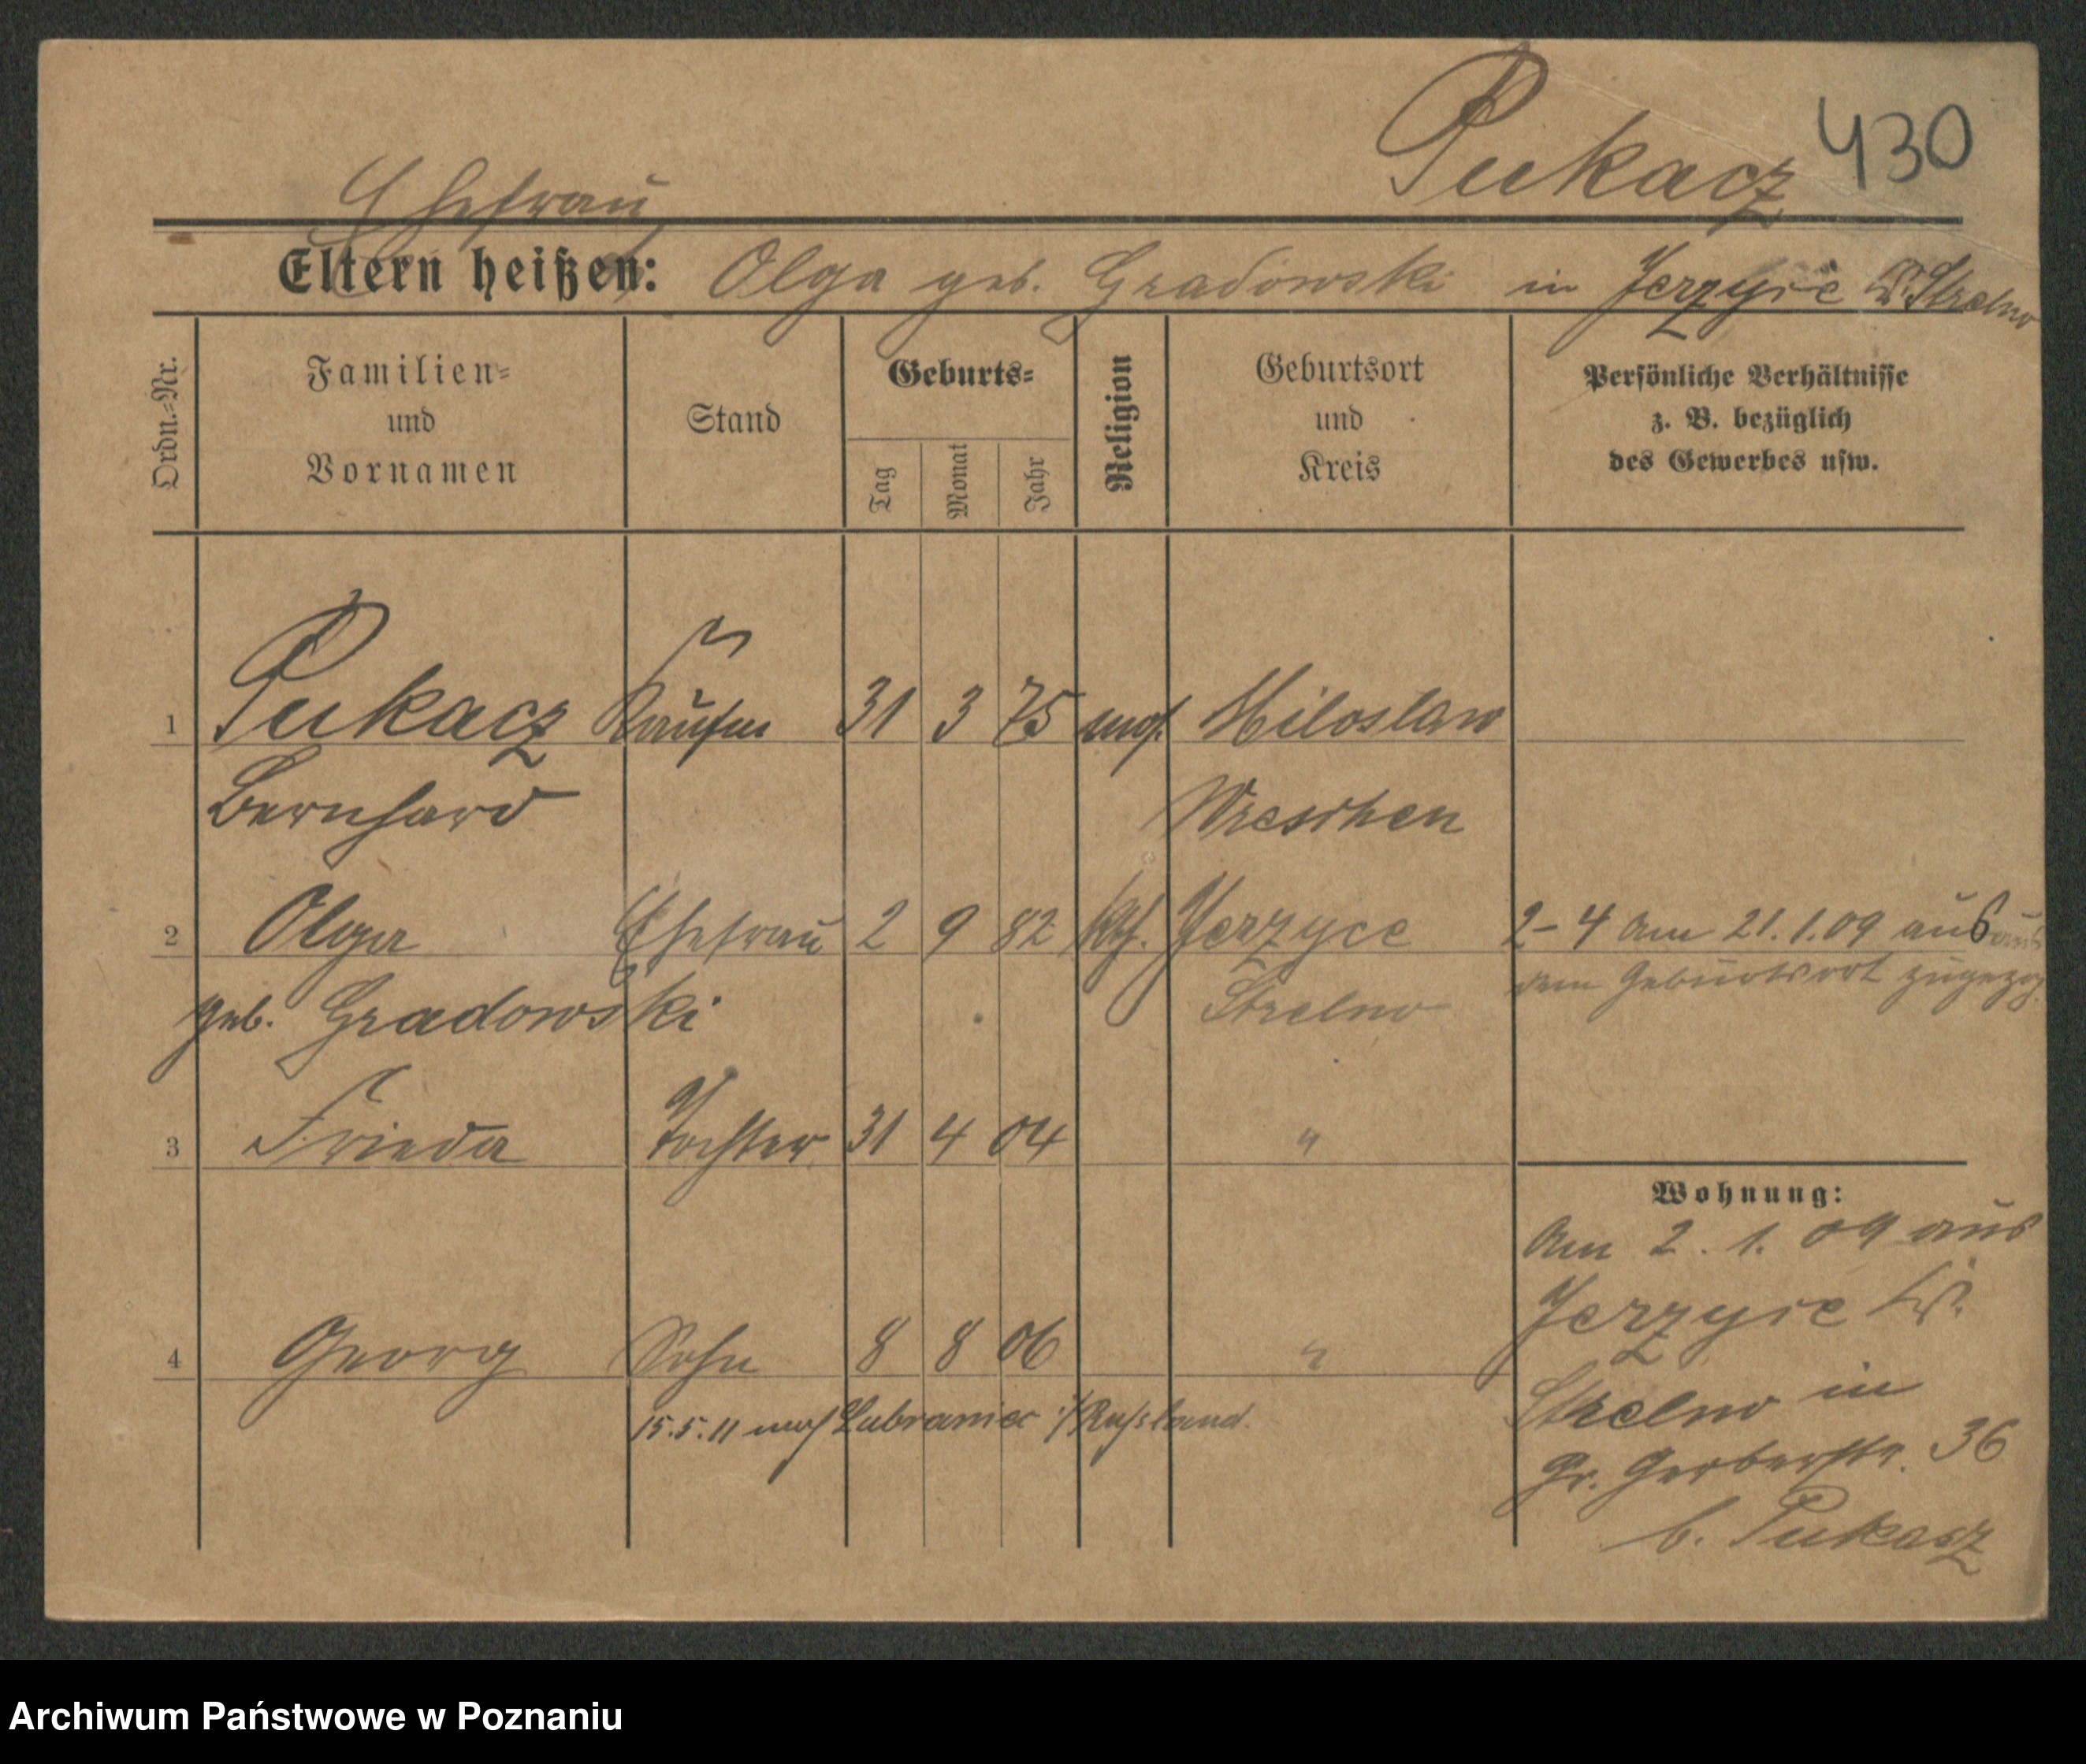 Pukacz 430
Ehefrau
Eltern heißen: Olga geb. Gradowski in Jerzyce Kr. Strelno
Ordn.-Nr.
Familien- und Vornamen
Stand
Geburts-
Tag
Monat
Jahr
Religion
Geburtsort und Kreis
Persönliche Verhältnisse
z. B. bezüglich
des Gewerbes usw.
1 Pukacz Kaufm 31 3 75 mos. Miloslaw
Bernhard Wreschen
2 Olga Ehefrau 2 9 82 Jerzyce 2-4 am 21.1.09 aus
geb. Gradowski Strelno dem Geburtsort zugezog.
3 Frieda Tochter 31 4 04 "
Wohnung:
Am 2. 1. 09 aus
Jerzyce Kr.
4 Georg Sohn 8 8 06 "
Strelno in
15.5.11 nach Lubraniec i/Russland.
Gr. Gerberstr. 36
b. Pukacz
Archiwum Państwowe w Poznaniu